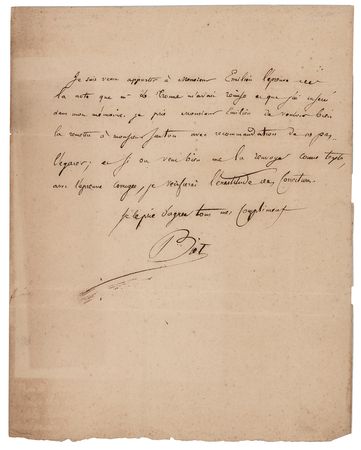 Je suis venu apporter à Monsieur Emilien l'épreuve et
la note que mr de Prony m'avait remise et que j'ai inséré
dans mon mémoire. je prie Monsieur Emilien de vouloir bien
la remettre à monsieur avec recommandation de ne pas
l'égarer; et si on veut bien me la renvoyer comme
avec l'épreuve corrigée, je vérifierai l'exactitude des
Je le prie d'agréer tous mes compliments
Biot